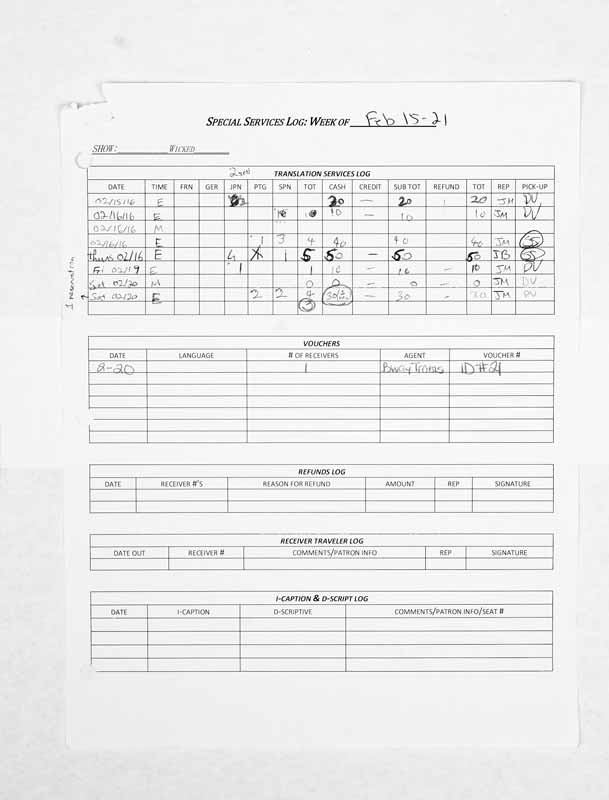 SPECIAL SERVICES LOG: WEEK OF Feb 15-21
SHOW: WICKED
TRANSLATION SERVICES LOG
DATE TIME FRN GER JPN PTG SPN TOT CASH CREDIT SUB TOT REFUND TOT REP PICK-UP
02/15/16 E 20 — 20 20 JM DV
02/16/16 E 10 — 10 10 JM DV
02/16/16 M
02/16/16 E 1 3 4 40 40 40 JM
Thurs 02/16 E 4 1 5 50 — 50 50 JB
Fri 02/19 E 1 1 10 — 10 - 10 JM DV
Sat 02/20 M 0 0 - 0 - 0 JM DV
Sat 02/20 E 2 2 4 - 30 - 30 JM DV
3
1 reservation
VOUCHERS
DATE LANGUAGE # OF RECEIVERS AGENT VOUCHER #
2-20 1 ID#21
REFUNDS LOG
DATE RECEIVER #'S REASON FOR REFUND AMOUNT REP SIGNATURE
RECEIVER TRAVELER LOG
DATE OUT RECEIVER # COMMENTS/PATRON INFO REP SIGNATURE
I-CAPTION & D-SCRIPT LOG
DATE I-CAPTION D-SCRIPTIVE COMMENTS/PATRON INFO/SEAT #